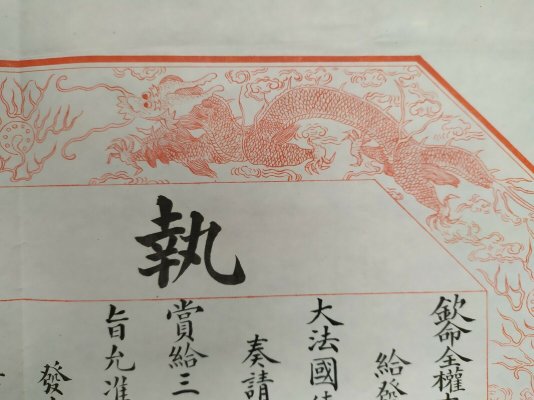 執
欽命全權
給發
大法國
奏請
賞給三
旨允准
發